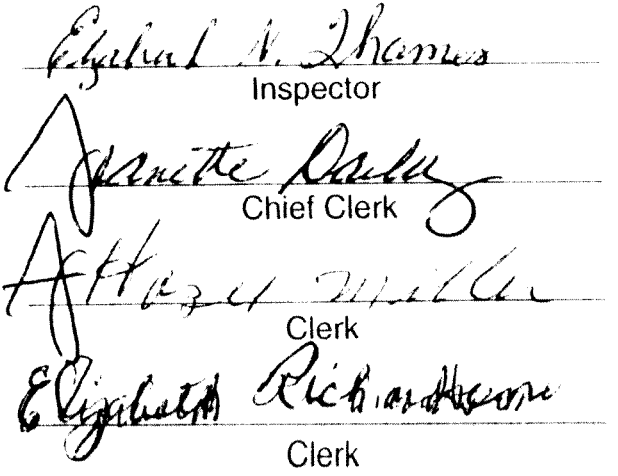 Elizabeth N. Thames
Inspector
Jeanette
Chief Clerk
Hazel Miller
Clerk
Elizabeth Richardson
Clerk